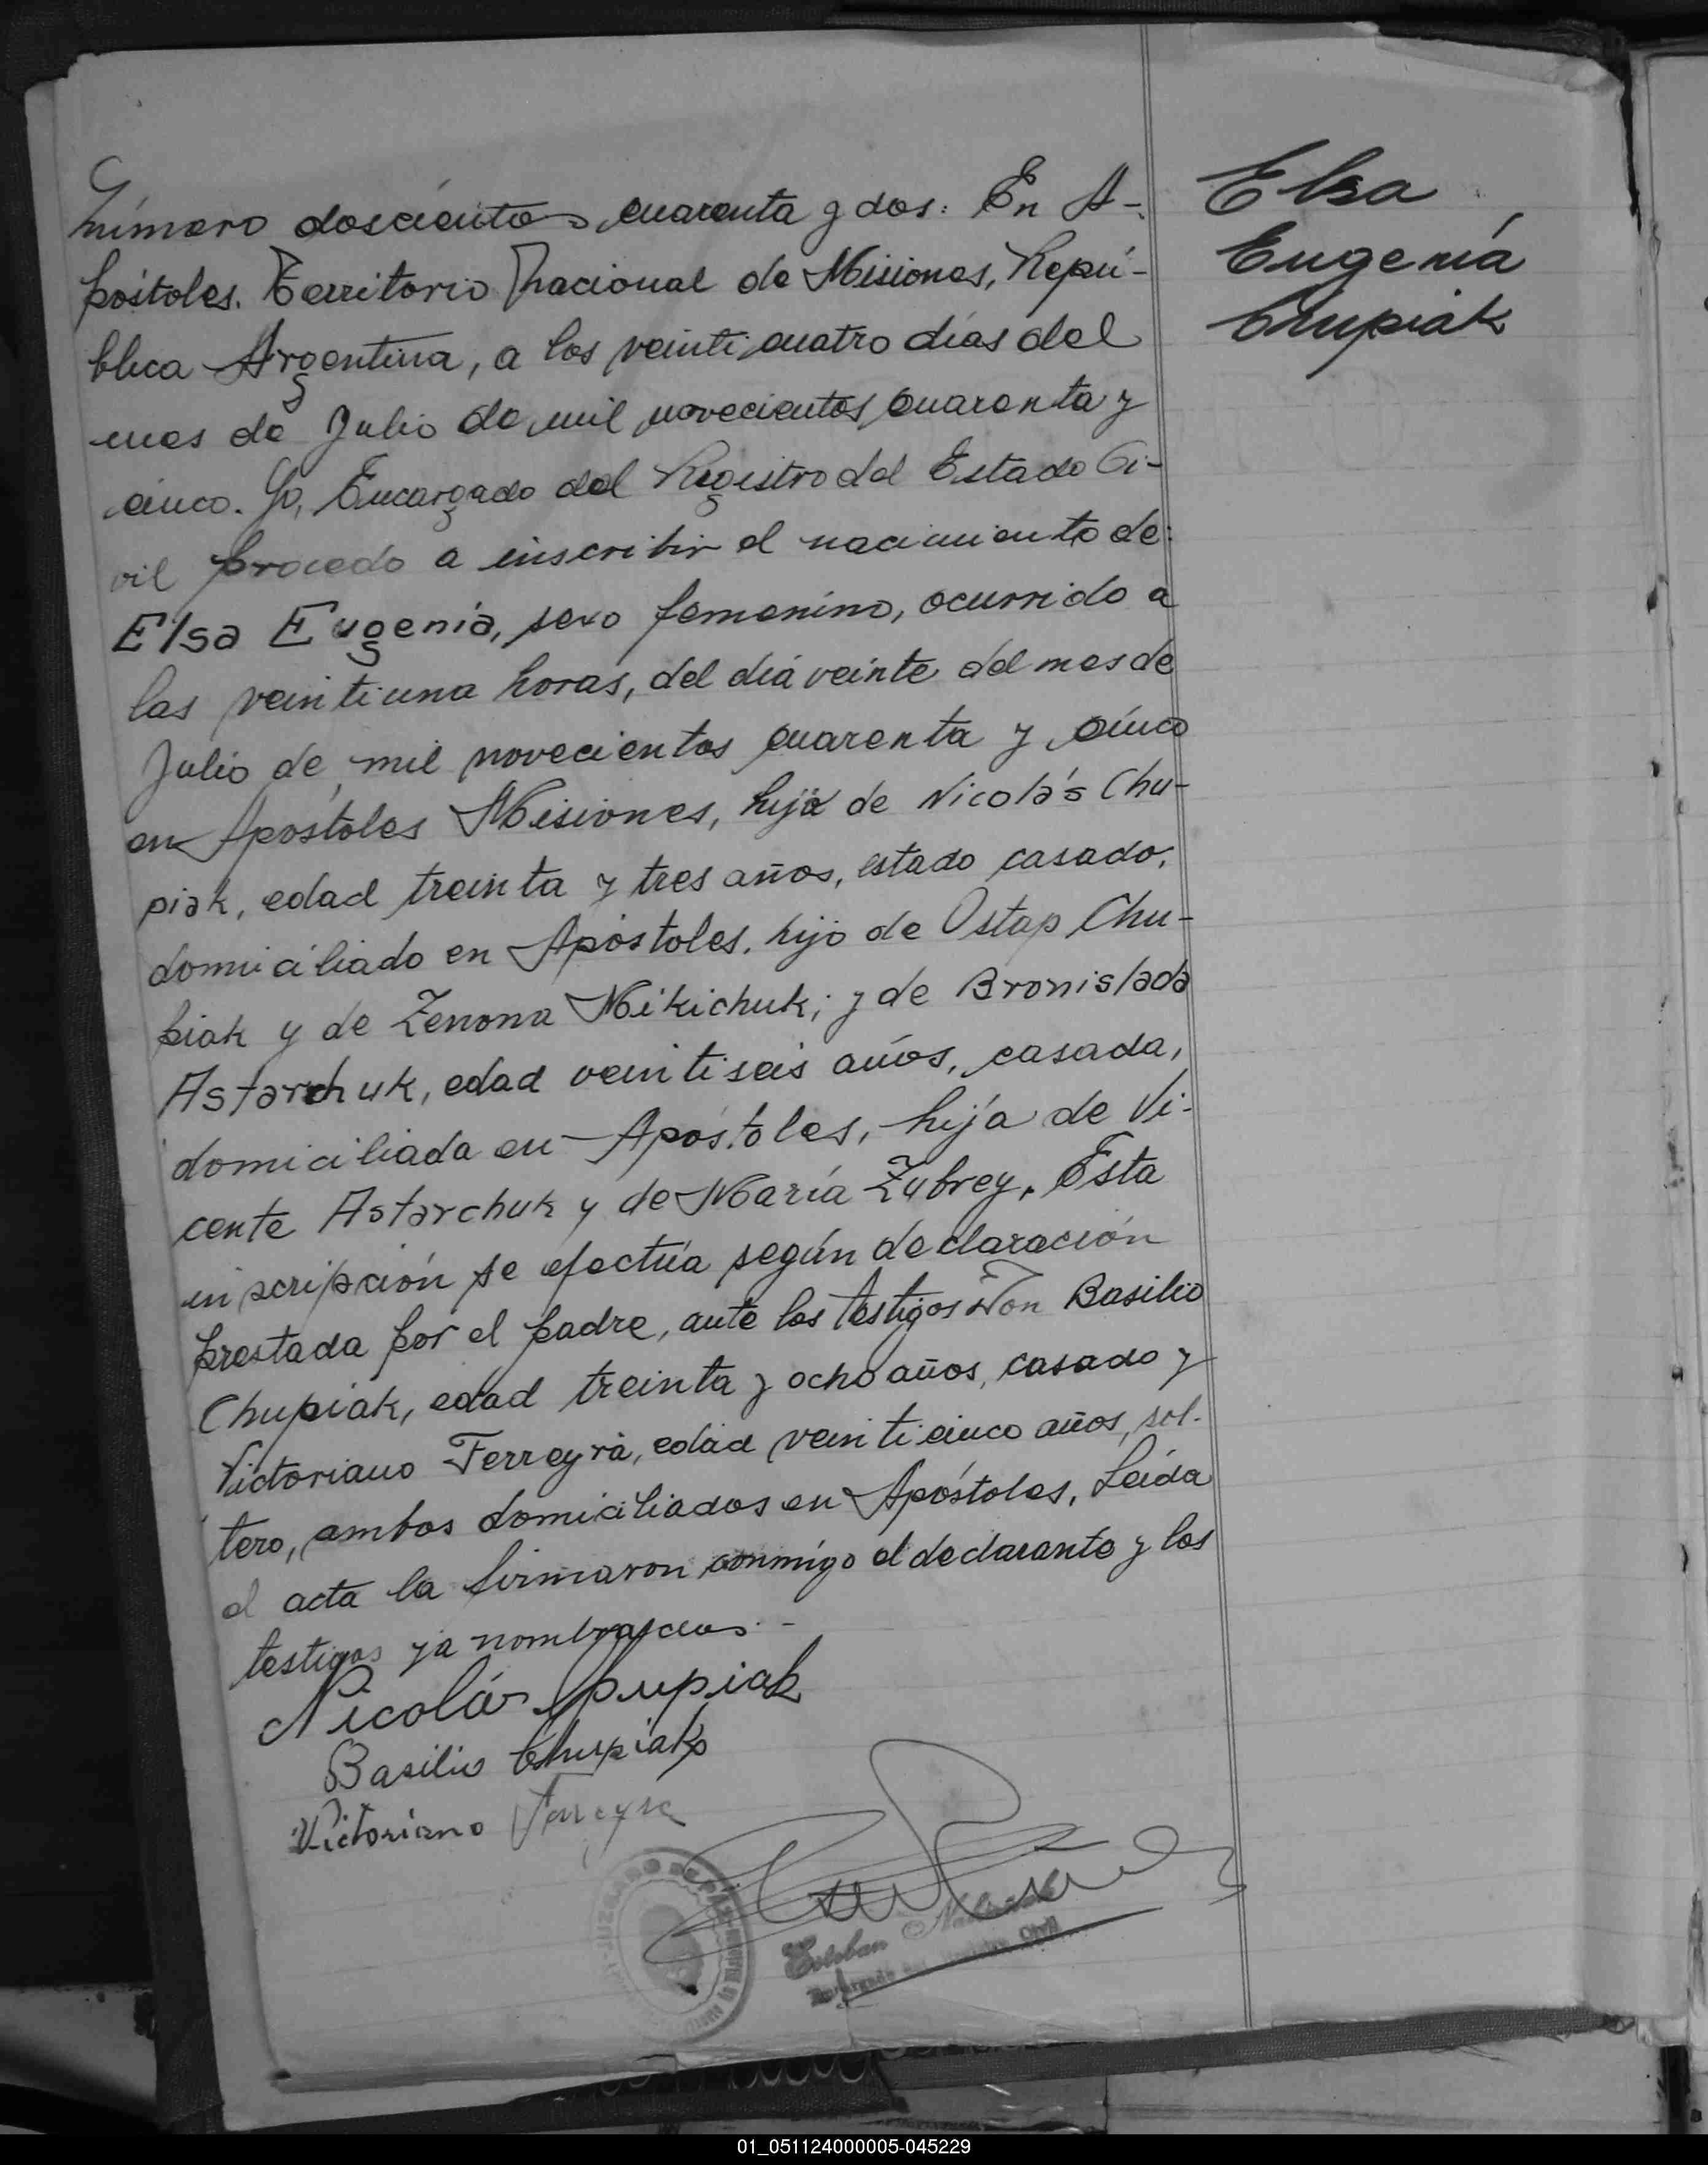 Número doscientos cuarenta y dos: En A-
póstoles. Territorio Nacional de Misiones, Repú-
blica Argentina, a los veinticuatro días del
mes de Julio de mil novecientos cuarenta y
cinco. Yo, Encargado del Registro del Estado Ci-
vil procedo a inscribir el nacimiento de:
Elsa Eugenia, sexo femenino, ocurrido a
las veintiuna horas, del día veinte del mes de
Julio de mil novecientos cuarenta y cinco
en Apóstoles Misiones, hija de Nicolás Chu-
piak, edad treinta y tres años, estado casado,
domiciliado en Apóstoles, hijo de Ostap Chu-
piak y de Zenona Mikichuk; y de Bronislada
Astarchuk, edad veintiseis años, casada,
domiciliada en Apóstoles, hija de Vi-
cente Astarchuk y de María Zubrey. Esta
inscripción se efectúa según declaración
prestada por el padre, ante los testigos Don Basilio
Chupiak, edad treinta y ocho años, casado y
Victoriano Ferreyra, edad veinticinco años, sol-
tero, ambos domiciliados en Apóstoles. Leída
el acta la firmaron conmigo el declarante y los
testigos ya nombrados.-
Nicolás Chupiak
Basilio Chupiak
Victoriano Ferreyra
JUZGADO DE PAZ
Esteban
Encargado del Registro Civil
Elsa
Eugenia
Chupiak
01_051124000005-045229